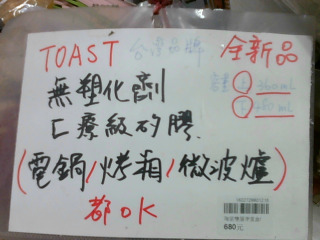 TOAST 台灣品牌 全新品
無塑化劑
容量 上 360ml
下 480ml
匚療級矽膠
(電鍋/烤箱/微波爐)
都OK
680元